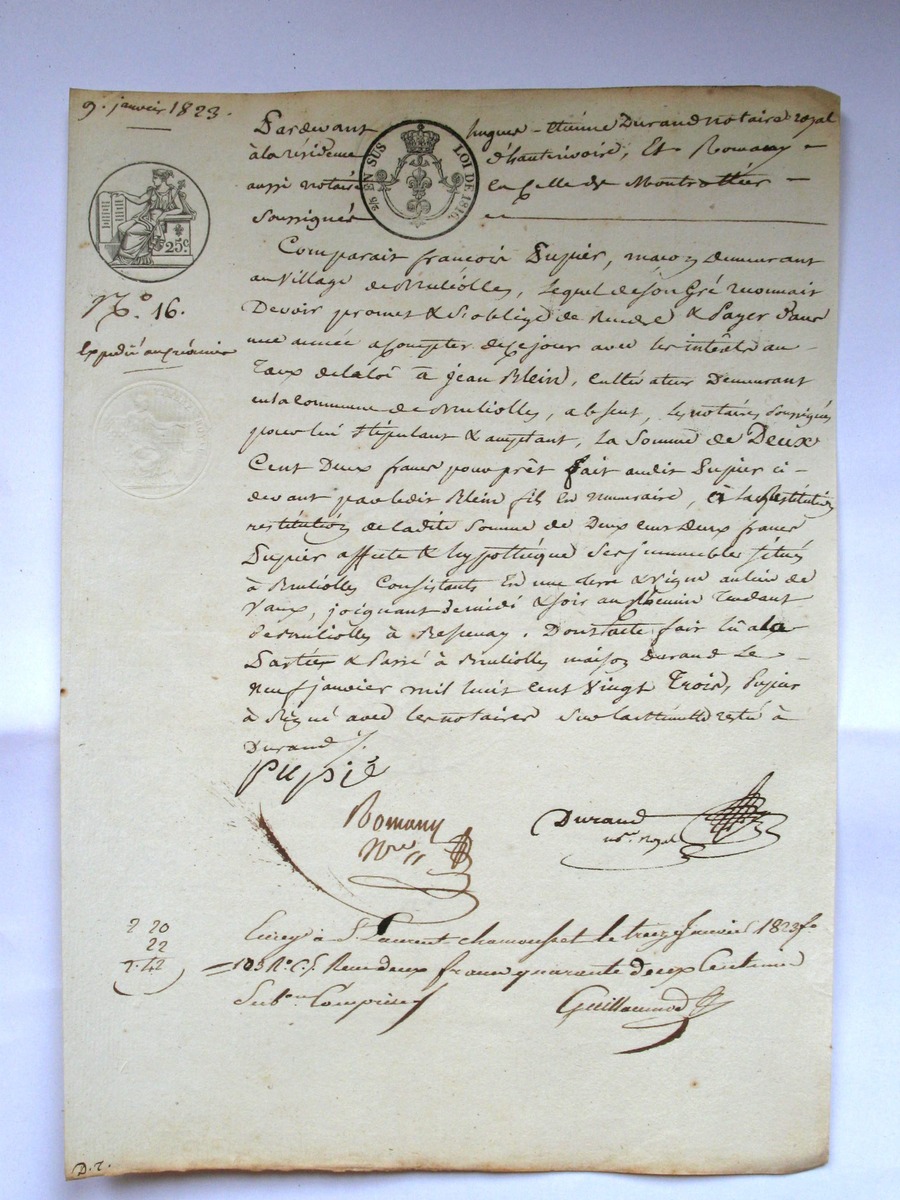 9. janvier 1823.
Pardevant hugues-étienne Durand notaire royal
à la résidence d'hauterivoire, Et Romany
aussi notaire en celle de Montrottier
Soussignés
EN SUS LOI DE 1816.
25c
No. 16.
Expédié au créancier
Comparait françois Pupier, maçon demeurant
au Village de Bruliolles, lequel de son Gré reconnait
Devoir promet & s'oblige de Rendre & Payer dans
une année a compter de ce jour avec les intérêts au
Taux de la loi à jean Blein, Cultivateur Demeurant
en la commune de Brulliolles, absent, les notaires Soussignés
pour lui stipulant & acceptant, la Somme de Deux
Cent Deux francs pour prêt fait audit Pupier ci-
devant par ledit Blein fils En numéraire, à la Restitution
restitution de ladite Somme de Deux cent deux francs
Pupier affecte & hypothèque ses immeubles situés
à Brulliolles Consistants En une terre & vigne au lieu de
Vaux, joignant de midi & soir au chemin Tendant
de Brulliolles à Bessenay. Dont acte fait lû aux
Parties & Passé à Brulliolles maison Durand Le
neuf janvier mil huit cent Vingt Trois, Pupier
à Signé avec les notaires sur la Minute restée à
Durand
pupié
Romany
Nre
Durand
nre royal
2 20
22
2.42
Enreg à St Laurent chamousset le treize Janvier 1823 fo
103 Ro C.5 Reçu deux francs quarante deux Centimes
Subon Comprise
Guillaumod
D.r.